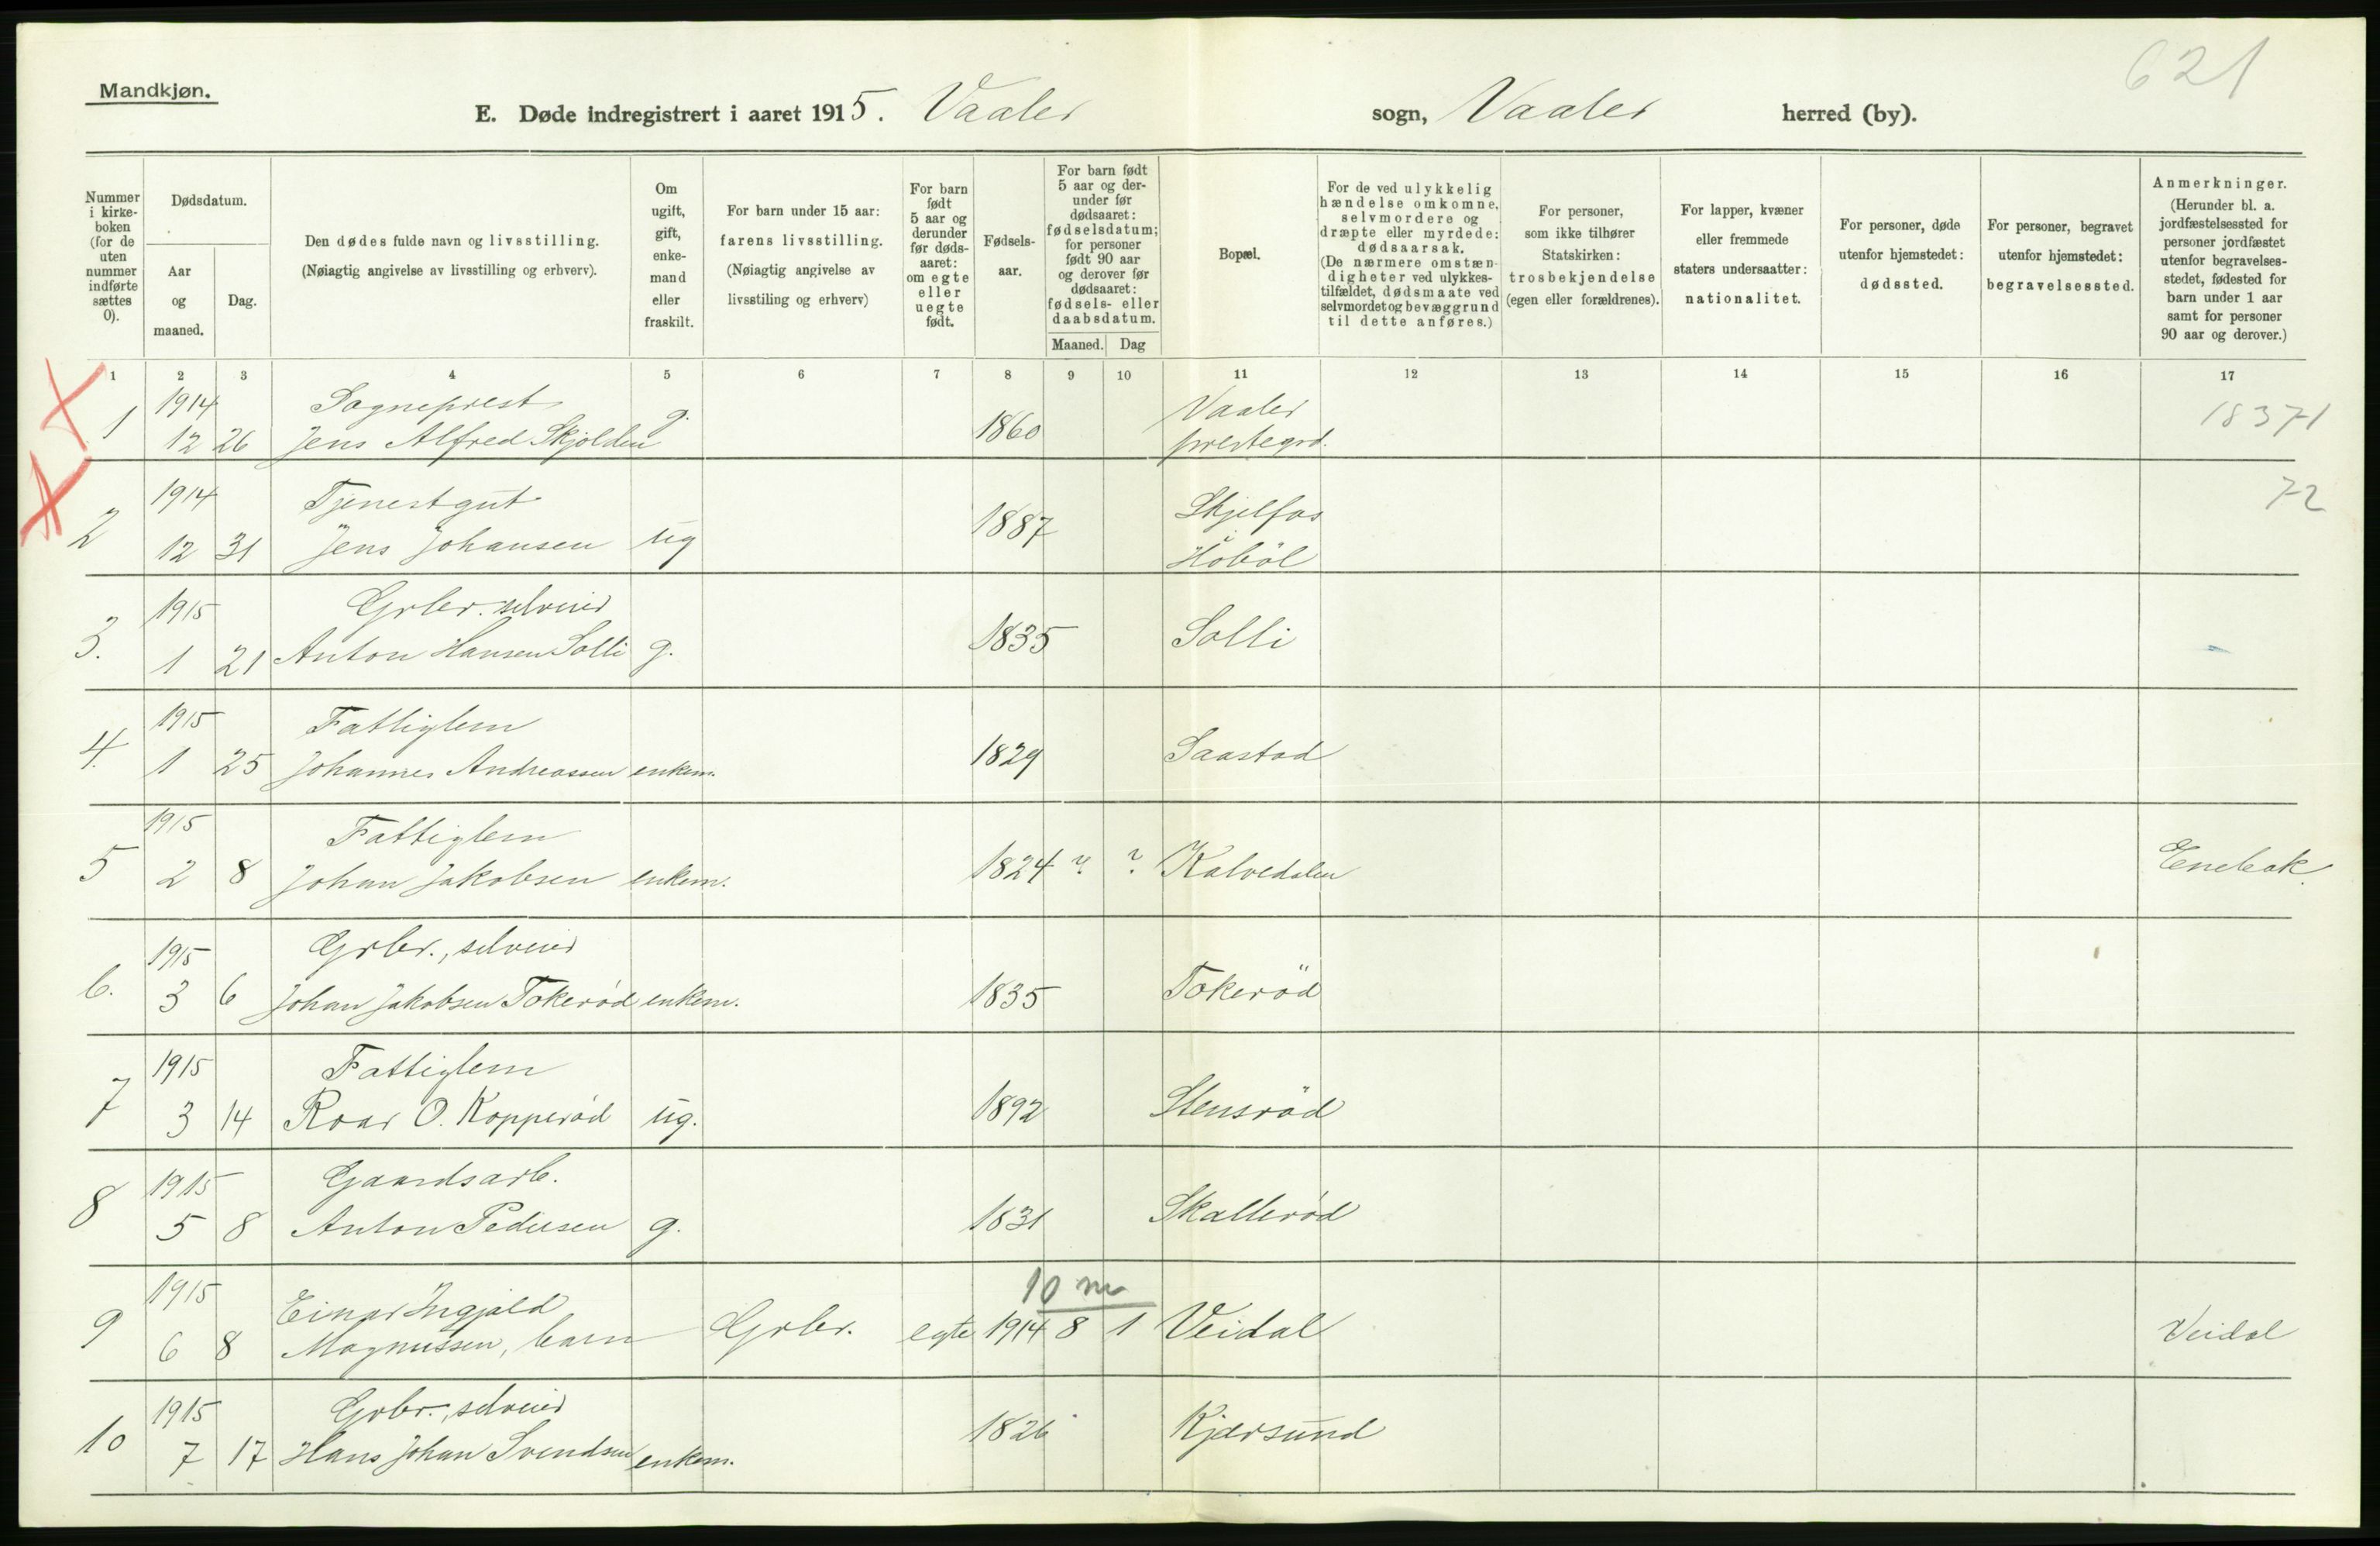 621
Mandkjøn.
E. Døde indregistrert i aaret 1915. Vaaler sogn, Vaaler herred (by).
Nummer i kirkeboken (for de uten nummer indførte sættes 0).
Dødsdatum.
Aar og maaned.
Dag.
Den dødes fulde navn og livsstilling.
(Nøiagtig angivelse av livsstilling og erhverv).
Om ugift, gift, enkemand eller fraskilt.
For barn under 15 aar:
farens livsstilling.
(Nøiagtig angivelse av livsstiling og erhverv)
For barn født 5 aar og derunder før dødsaaret: om egte eller uegte født.
Fødselsaar.
For barn født 5 aar og derunder før dødsaaret: fødselsdatum; for personer født 90 aar og derover før dødsaaret: fødsels- eller daabsdatum.
Maaned. Dag
Bopæl.
For de ved ulykkelig hændelse omkomne, selvmordere og dræpte eller myrdede: dødsaarsak.
(De nærmere omstændigheter ved ulykkestilfældet, dødsmaate ved selvmordet og bevæggrund til dette anføres.)
For personer, som ikke tilhører Statskirken: trosbekjendelse (egen eller forældrenes).
For lapper, kvæner eller fremmede staters undersaatter: nationalitet.
For personer, døde utenfor hjemstedet: dødssted.
For personer, begravet utenfor hjemstedet: begravelsessted.
Anmerkninger.
(Herunder bl. a. jordfæstelsessted for personer jordfæstet utenfor begravelsesstedet, fødested for barn under 1 aar samt for personer 90 aar og derover.)
1 2 3 4 5 6 7 8 9 10 11 12 13 14 15 16 17
1914 Sogneprest Vaaler 18371
1 12 26 Jens Alfred Skjolden g. 1860 prestegrd.
1914 Tjenestgut Skjelfos 72
2 12 31 Jens Johansen ug 1887 Höböl
1915 Grbr. selveier
3. 1 21 Anton Hansen Solli g. 1835 Solli
1915 Fattiglem
4. 1 25 Johannes Andreassen enkem. 1829 Saastad
1915 Fattiglem
5 2 8 Johan Jakobsen enkem. 1824 ? ? Kalvedalen Enebak.
1915 Grbr., selveier
6. 3 6 Johan Jakobsen Tokeröd enkem. 1835 Tokeröd
1915 Fattiglem
7 3 14 Roar O. Kopperöd ug. 1892 Stensröd
1915 Gaardsarb.
8 5 8 Anton Pedersen g. 1831 Skalleröd
1915 Einar Ingjald 10 m
9 6 8 Magnussen, barn Grbr. egte 1914 8 1 Veidal Veidal
1915 Grbr., selveier
10 7 17 Hans Johan Svendsen enkem. 1826 Kjærsund